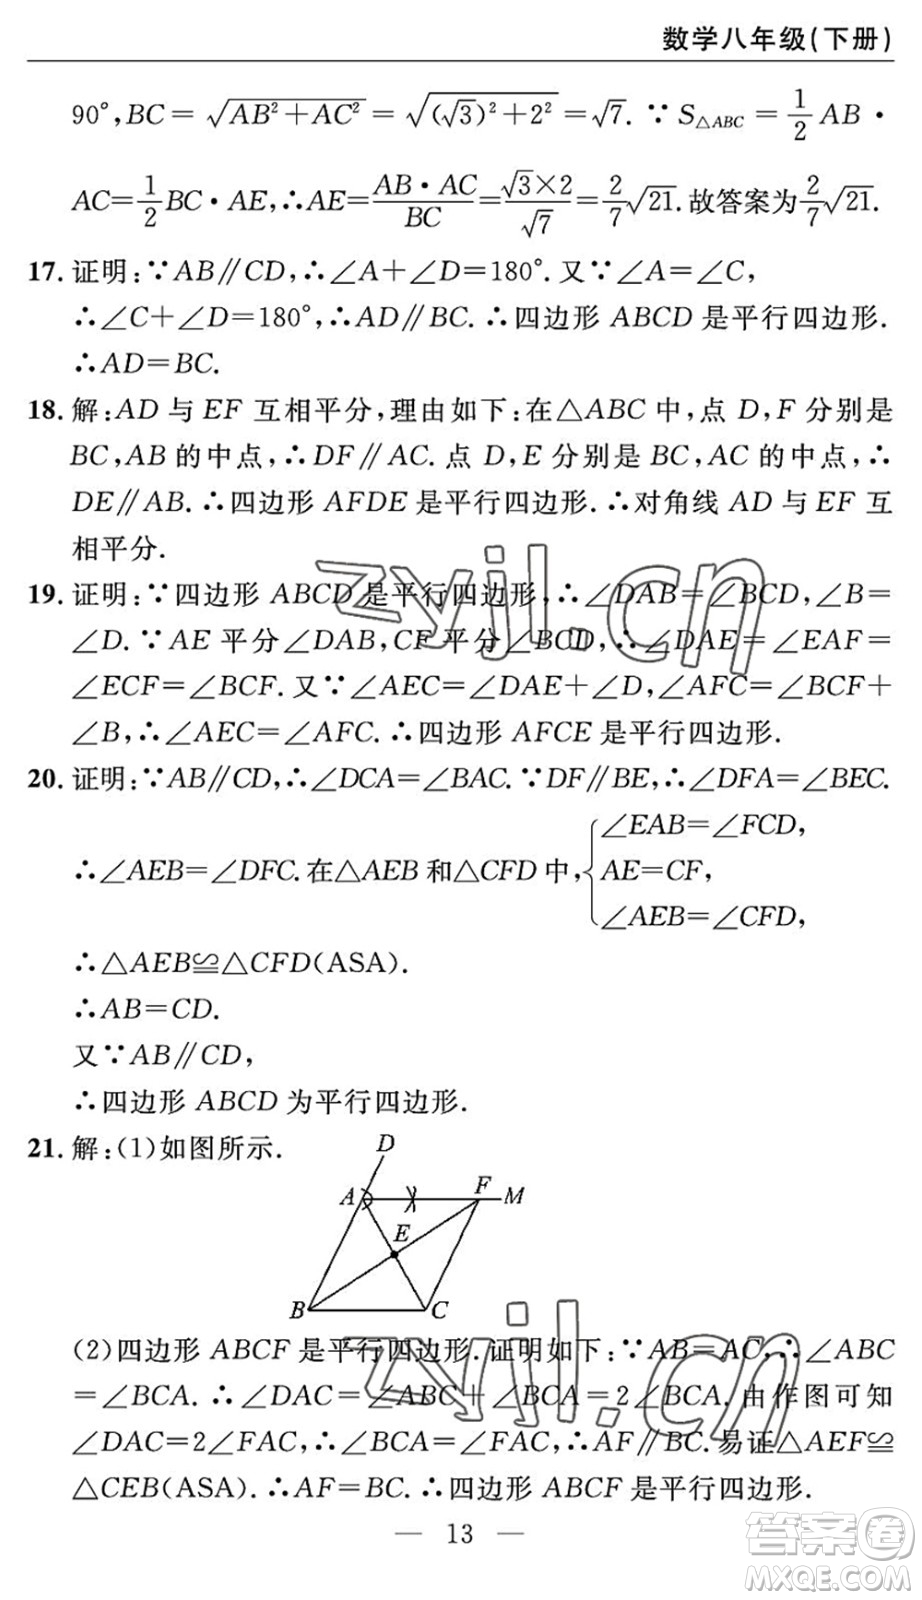 数学八年级(下册)
90°,BC=√(AB²+AC²)=√((√3)²+2²)=√7. ∵S△ABC=1/2 AB·
AC=1/2 BC·AE,∴AE=AB·AC/BC=√3×2/√7=2/7√21.故答案为2/7√21.
17.证明:∵AB∥CD,∴∠A+∠D=180°.又∵∠A=∠C,
∴∠C+∠D=180°,∴AD∥BC.∴四边形ABCD是平行四边形.
∴AD=BC.
18.解:AD与EF互相平分,理由如下:在△ABC中,点D,F分别是
BC,AB的中点,∴DF∥AC.点D,E分别是BC,AC的中点,∴
DE∥AB.∴四边形AFDE是平行四边形.∴对角线AD与EF互
相平分.
19.证明:∵四边形ABCD是平行四边形,∴∠DAB=∠BCD,∠B=
∠D.∵AE平分∠DAB,CF平分∠BCD,∴∠DAE=∠EAF=
∠ECF=∠BCF.又∵∠AEC=∠DAE+∠D,∠AFC=∠BCF+
∠B,∴∠AEC=∠AFC.∴四边形AFCE是平行四边形.
20.证明:∵AB∥CD,∴∠DCA=∠BAC.∵DF∥BE,∴∠DFA=∠BEC.
∠EAB=∠FCD,
∴∠AEB=∠DFC.在△AEB和△CFD中,{AE=CF,
∠AEB=∠CFD,
∴△AEB≌△CFD(ASA).
∴AB=CD.
又∵AB∥CD,
∴四边形ABCD为平行四边形.
21.解:(1)如图所示.
D
A F M
E
B C
(2)四边形ABCF是平行四边形.证明如下:∵AB=AC,∴∠ABC
=∠BCA.∴∠DAC=∠ABC+∠BCA=2∠BCA.由作图可知
∠DAC=2∠FAC,∴∠BCA=∠FAC,∴AF∥BC.易证△AEF≌
△CEB(ASA).∴AF=BC.∴四边形ABCF是平行四边形.
— 13 —
zyjl.cn
zyjl.cn
答案圈
MXQE.COM